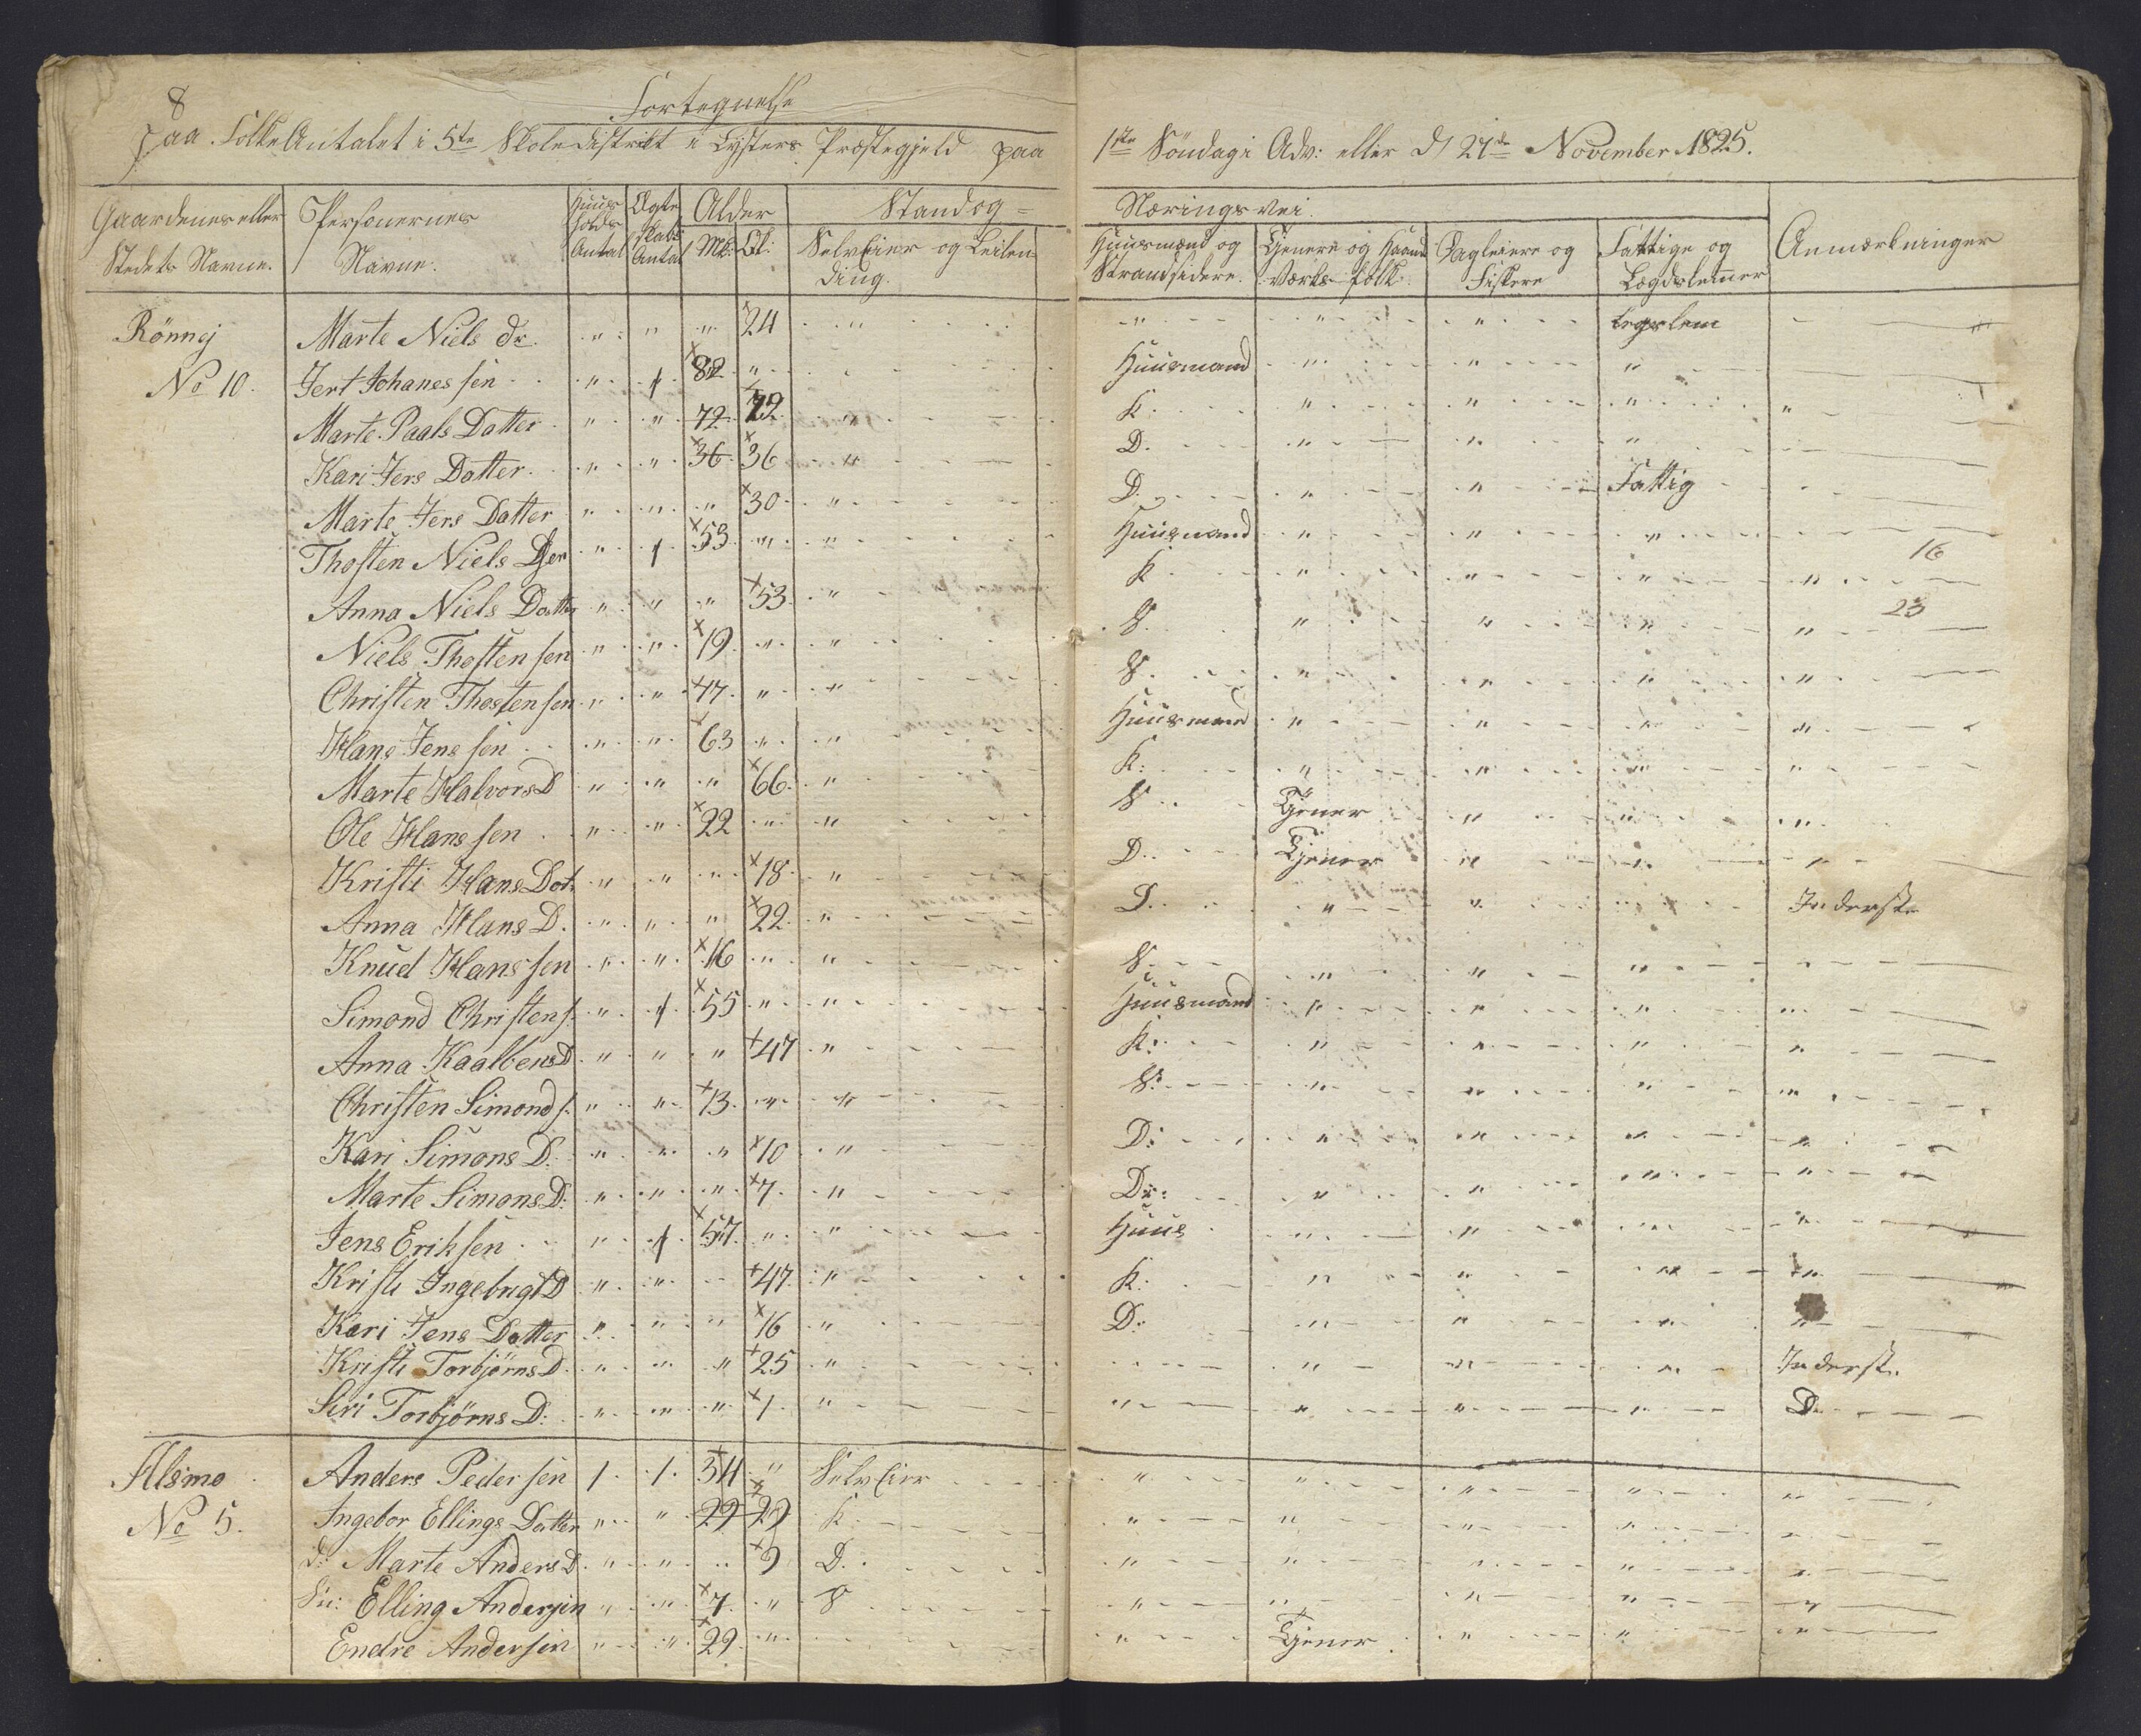 8
Fortegnelse
paa FolkeAntalet i 5te Skoledistrikt i Lysters Præstegjeld paa 1ste Söndag i Adv: eller d 27de November 1825.
Gaardenes eller Stedets Navne. Personernes Navne. Huus holds Antal Ægte skabs Antal Alder Mk: Qk: Stand og = Næringsvei.
SelvEier og Leilen ding. Huusmænd og Strandsidere. Tjenere og Haand Værks folk. Dagleiere og Fiskere Fattige og Lægdslemer Anmærkninger
Rönnej Marte Niels dr. " " " 24 " " " " legslem
No 10. Jert Johanes sen " 1 82 " Huusmand " " "
Marte Paals Datter " " 72 72 " K " " " "
Kari Jers Datter " " 36 36 " D. " " "
Marte Jers Datter " " " 30 " D. " " Fattig
Thosten Niels Ser " 1 53 " " Huusmand " " "
16
Anna Niels Datter " " " 53 " K " " " "
23
Niels Thosten sen " " 19 " " S. " " " "
Christen Thosten sen " " 17 " " S. " " " "
Hans Jens sen " " 63 " " Huusmand " " " "
Marte Halvors D " " " 66 " K: " " " "
Ole Hans sen " " 22 " " S Tjener " " "
Kristi Hans Dot " " " 18 " D. Tjener " " "
Anna Hans D. " " " 22 " D. " " " Inderste
Knud Hans sen " " 16 " " S. " " "
Simond Christen s. " 1 55 " " Huusmand " " " "
Anna Kaalbens D " " " 47 " K: " " " "
Christen Simond s. " " 13 " " S: " " " "
Kari Simons D. " " " 10 " D: " " " "
Marte Simons D: " " " 7 " Dr: " " " "
Jens Erik sen " 1 57 " " Huus " " " "
Kristi Ingebrigt D " " 47 " K: " " " "
Kari Jens Datter " " " 16 " D: " " " "
Kristi Torbjörns D. " " " 25 " " " " Inderst.
Siri Torbjörns D: " " " 1 " " " " " D
Alsmo Anders Peder sen 1 1 34 " SelvEier " " " " "
No 5. Ingebor Ellings Datter " " 29 29 K " " " " "
d: Marte Anders D. " " " 9 D. " " " " "
Sn: Elling Andersen " " 7 " S " " " " "
Endre Andersen " " 29 " " Tjener " " "